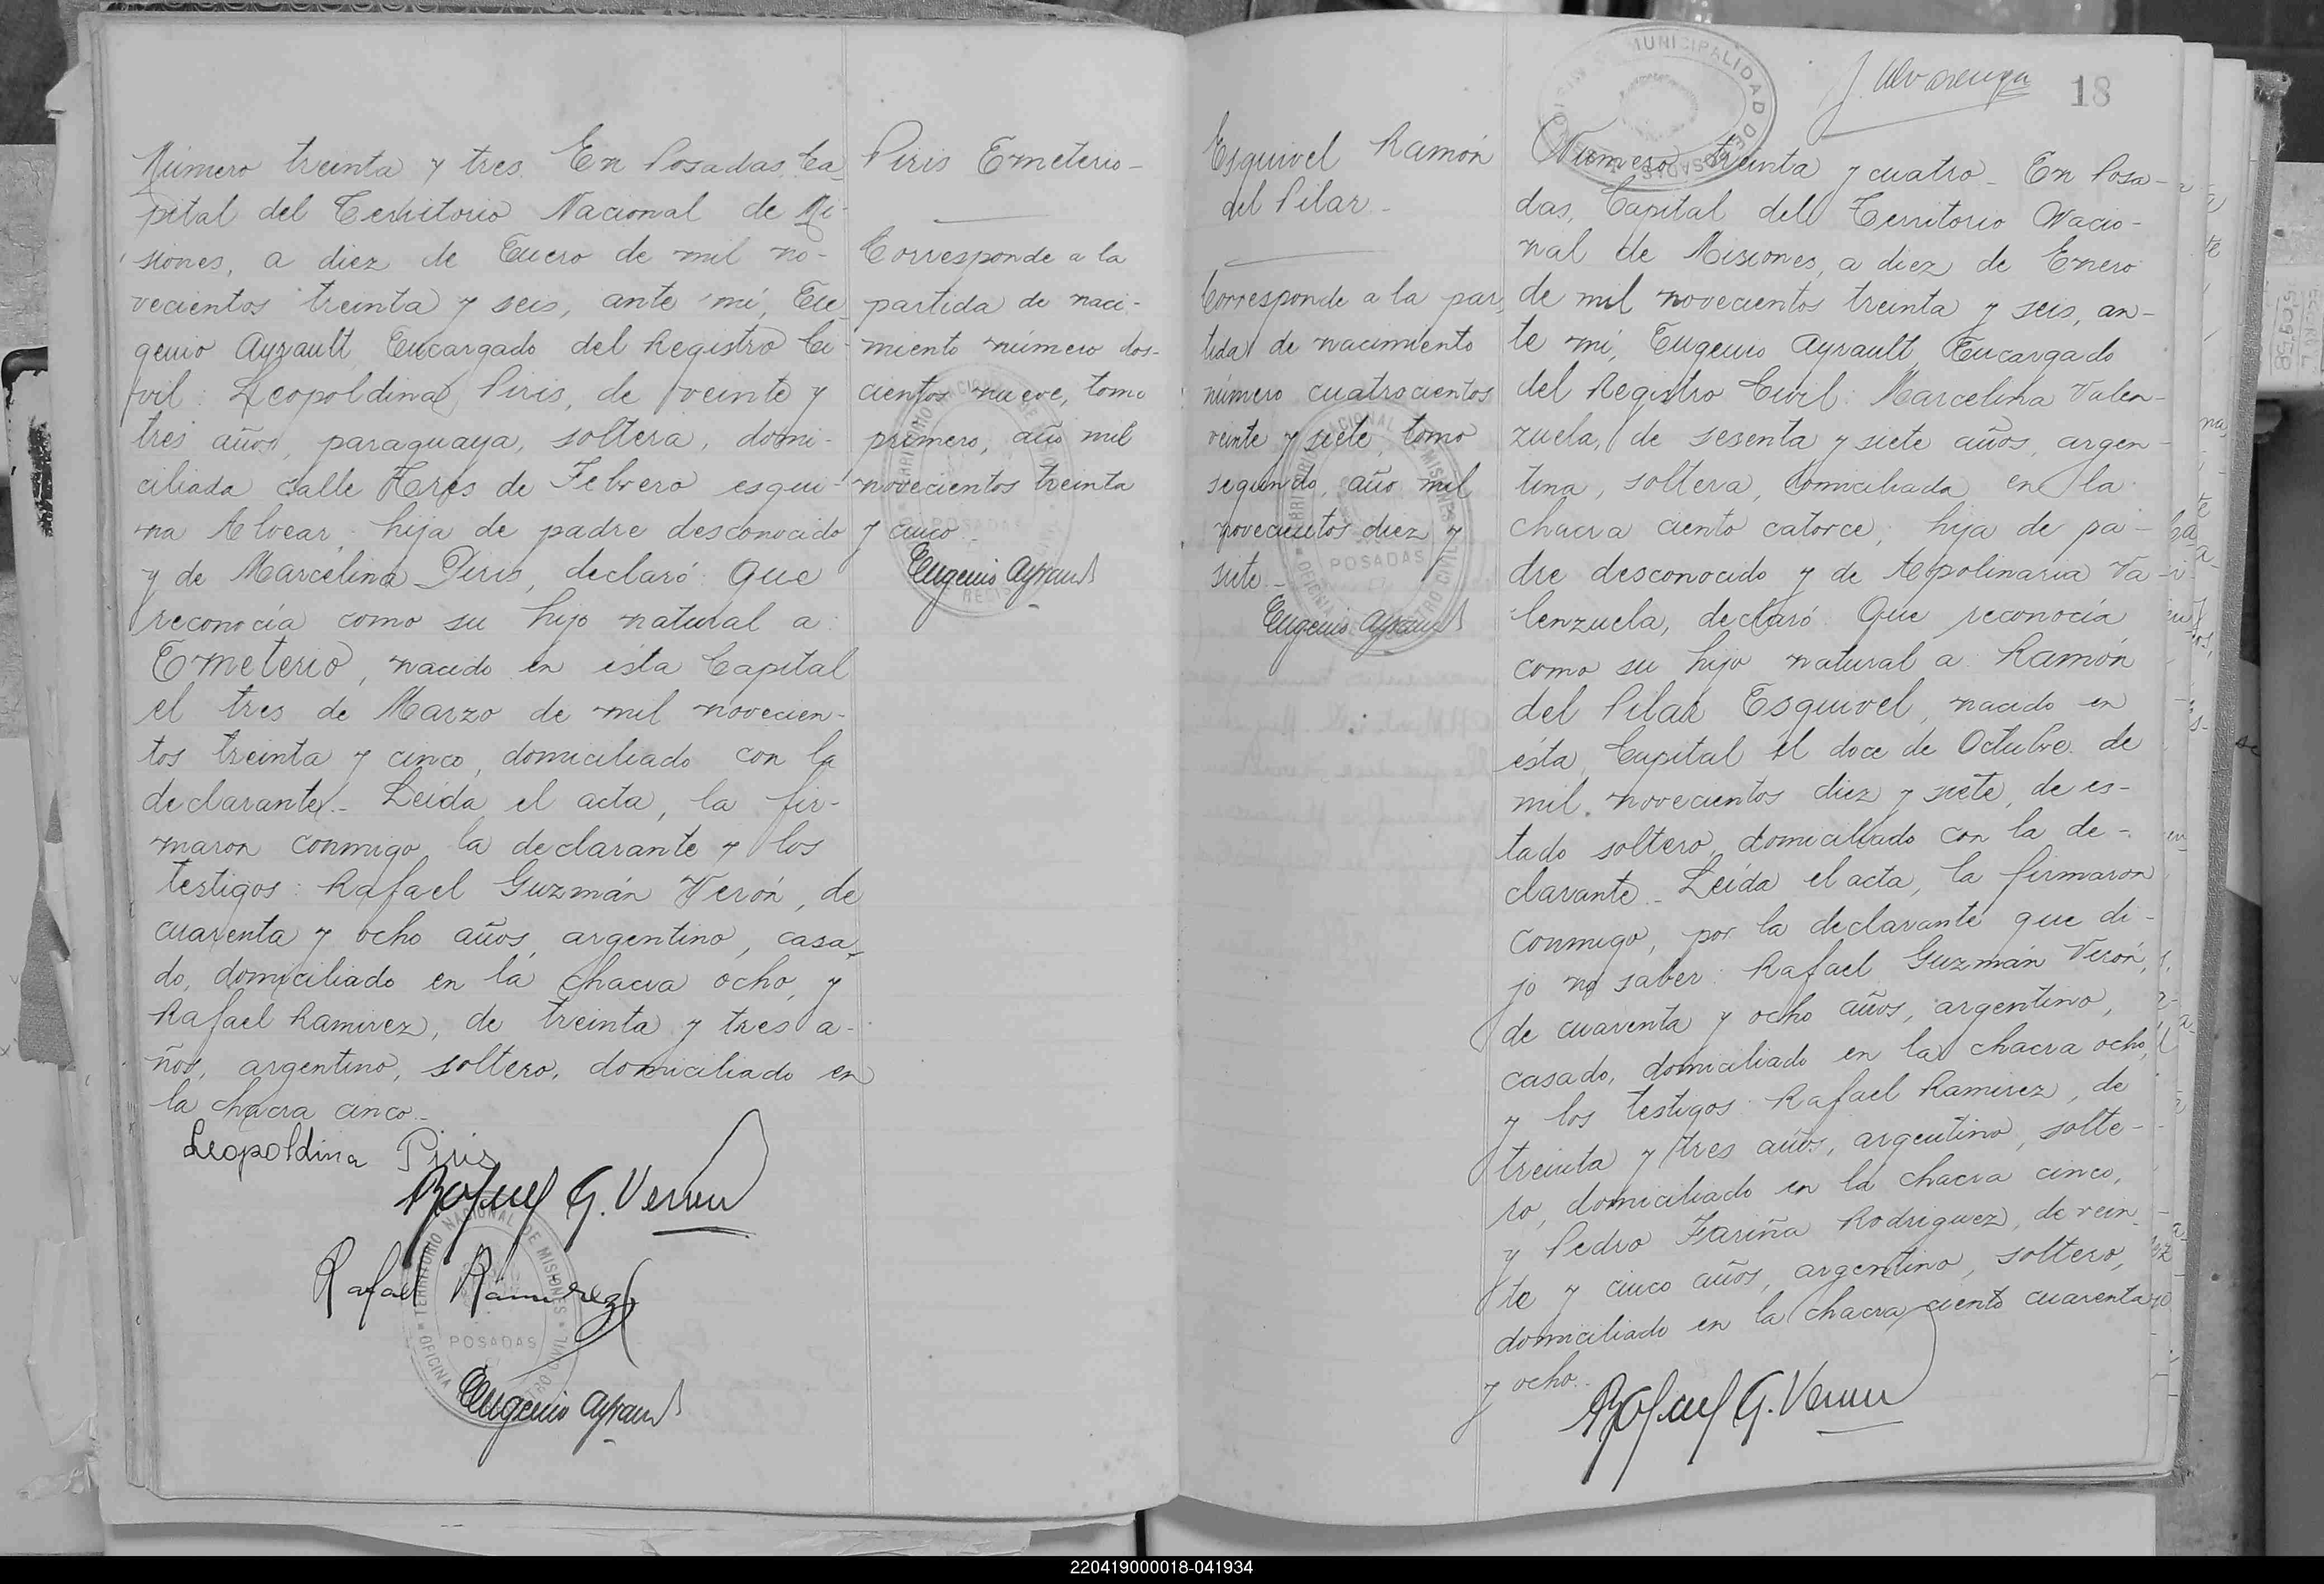 Número treinta y tres. En Posadas, Ca-
pital del Territorio Nacional de Mi-
siones, a diez de Enero de mil no-
vecientos treinta y seis, ante mí, Eu-
genio Ayrault, Encargado del Registro Ci-
vil: Leopoldina Piris, de veinte y
tres años, paraguaya, soltera, domi-
ciliada calle Tres de Febrero esqui-
na Alvear, hija de padre desconocido
y de Marcelina Piris, declaró: Que
reconocía como su hijo natural a:
Emeterio, nacido en ésta Capital
el tres de Marzo de mil novecien-
tos treinta y cinco, domiciliado con la
declarante.- Leída el acta, la fir-
maron conmigo la declarante y los
testigos: Rafael Guzmán Verón, de
cuarenta y ocho años, argentino, casa-
do, domiciliado en la chacra ocho, y
Rafael Ramirez, de treinta y tres a-
ños, argentino, soltero, domiciliado en
la chacra cinco.-
Leopoldina Piris
Rafael G. Veron
Rafael Ramirez
TERRITORIO NACIONAL DE MISIONES
POSADAS
OFICINA REGISTRO CIVIL
Eugenio Ayrault
Piris Emeterio-
Corresponde a la
partida de naci-
miento número dos-
cientos nueve, tomo
primero, año mil
novecientos treinta
y cinco.-
Eugenio Ayrault
TERRITORIO NACIONAL DE MISIONES
POSADAS
Esquivel Ramón
del Pilar-
Corresponde a la par-
tida de nacimiento
número cuatrocientos
veinte y siete, tomo
segundo, año mil
novecientos diez y
siete.-
Eugenio Ayrault
TERRITORIO NACIONAL DE MISIONES
POSADAS
OFICINA REGISTRO CIVIL
MUNICIPALIDAD DE POSADAS
J. Alvarenga
18
Número treinta y cuatro- En Posa-
das, Capital del Territorio Nacio-
nal de Misiones, a diez de Enero
de mil novecientos treinta y seis, an-
te mí, Eugenio Ayrault Encargado
del Registro Civil: Marcelina Valen-
zuela, de sesenta y siete años, argen-
tina, soltera, domiciliada en la
chacra ciento catorce, hija de pa-
dre desconocido y de Apolinaria Va-
lenzuela, declaró: Que reconocía
como su hijo natural a: Ramón
del Pilar Esquivel, nacido en
ésta Capital el doce de Octubre de
mil novecientos diez y siete, de es-
tado soltero, domiciliado con la de-
clarante.- Leída el acta, la firmaron
conmigo, por la declarante que di-
jo no saber: Rafael Guzmán Verón,
de cuarenta y ocho años, argentino,
casado, domiciliado en la chacra ocho,
y los testigos: Rafael Ramirez, de
treinta y tres años, argentino, solte-
ro, domiciliado en la chacra cinco,
y Pedro Fariña Rodriguez, de vein-
te y cinco años, argentino, soltero,
domiciliado en la chacra ciento cuarenta
y ocho.-
Rafael G. Veron
220419000018-041934